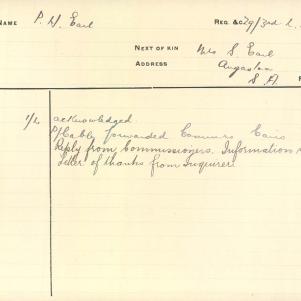 NAME P. H. Earl REG. &c. 29/3rd L.
NEXT OF KIN Mrs S. Earl
ADDRESS Angaston
S. A.
1/6 acknowledged
forwarded Cairo
Reply from Commissioners. Information
Letter of thanks from Inquirer.